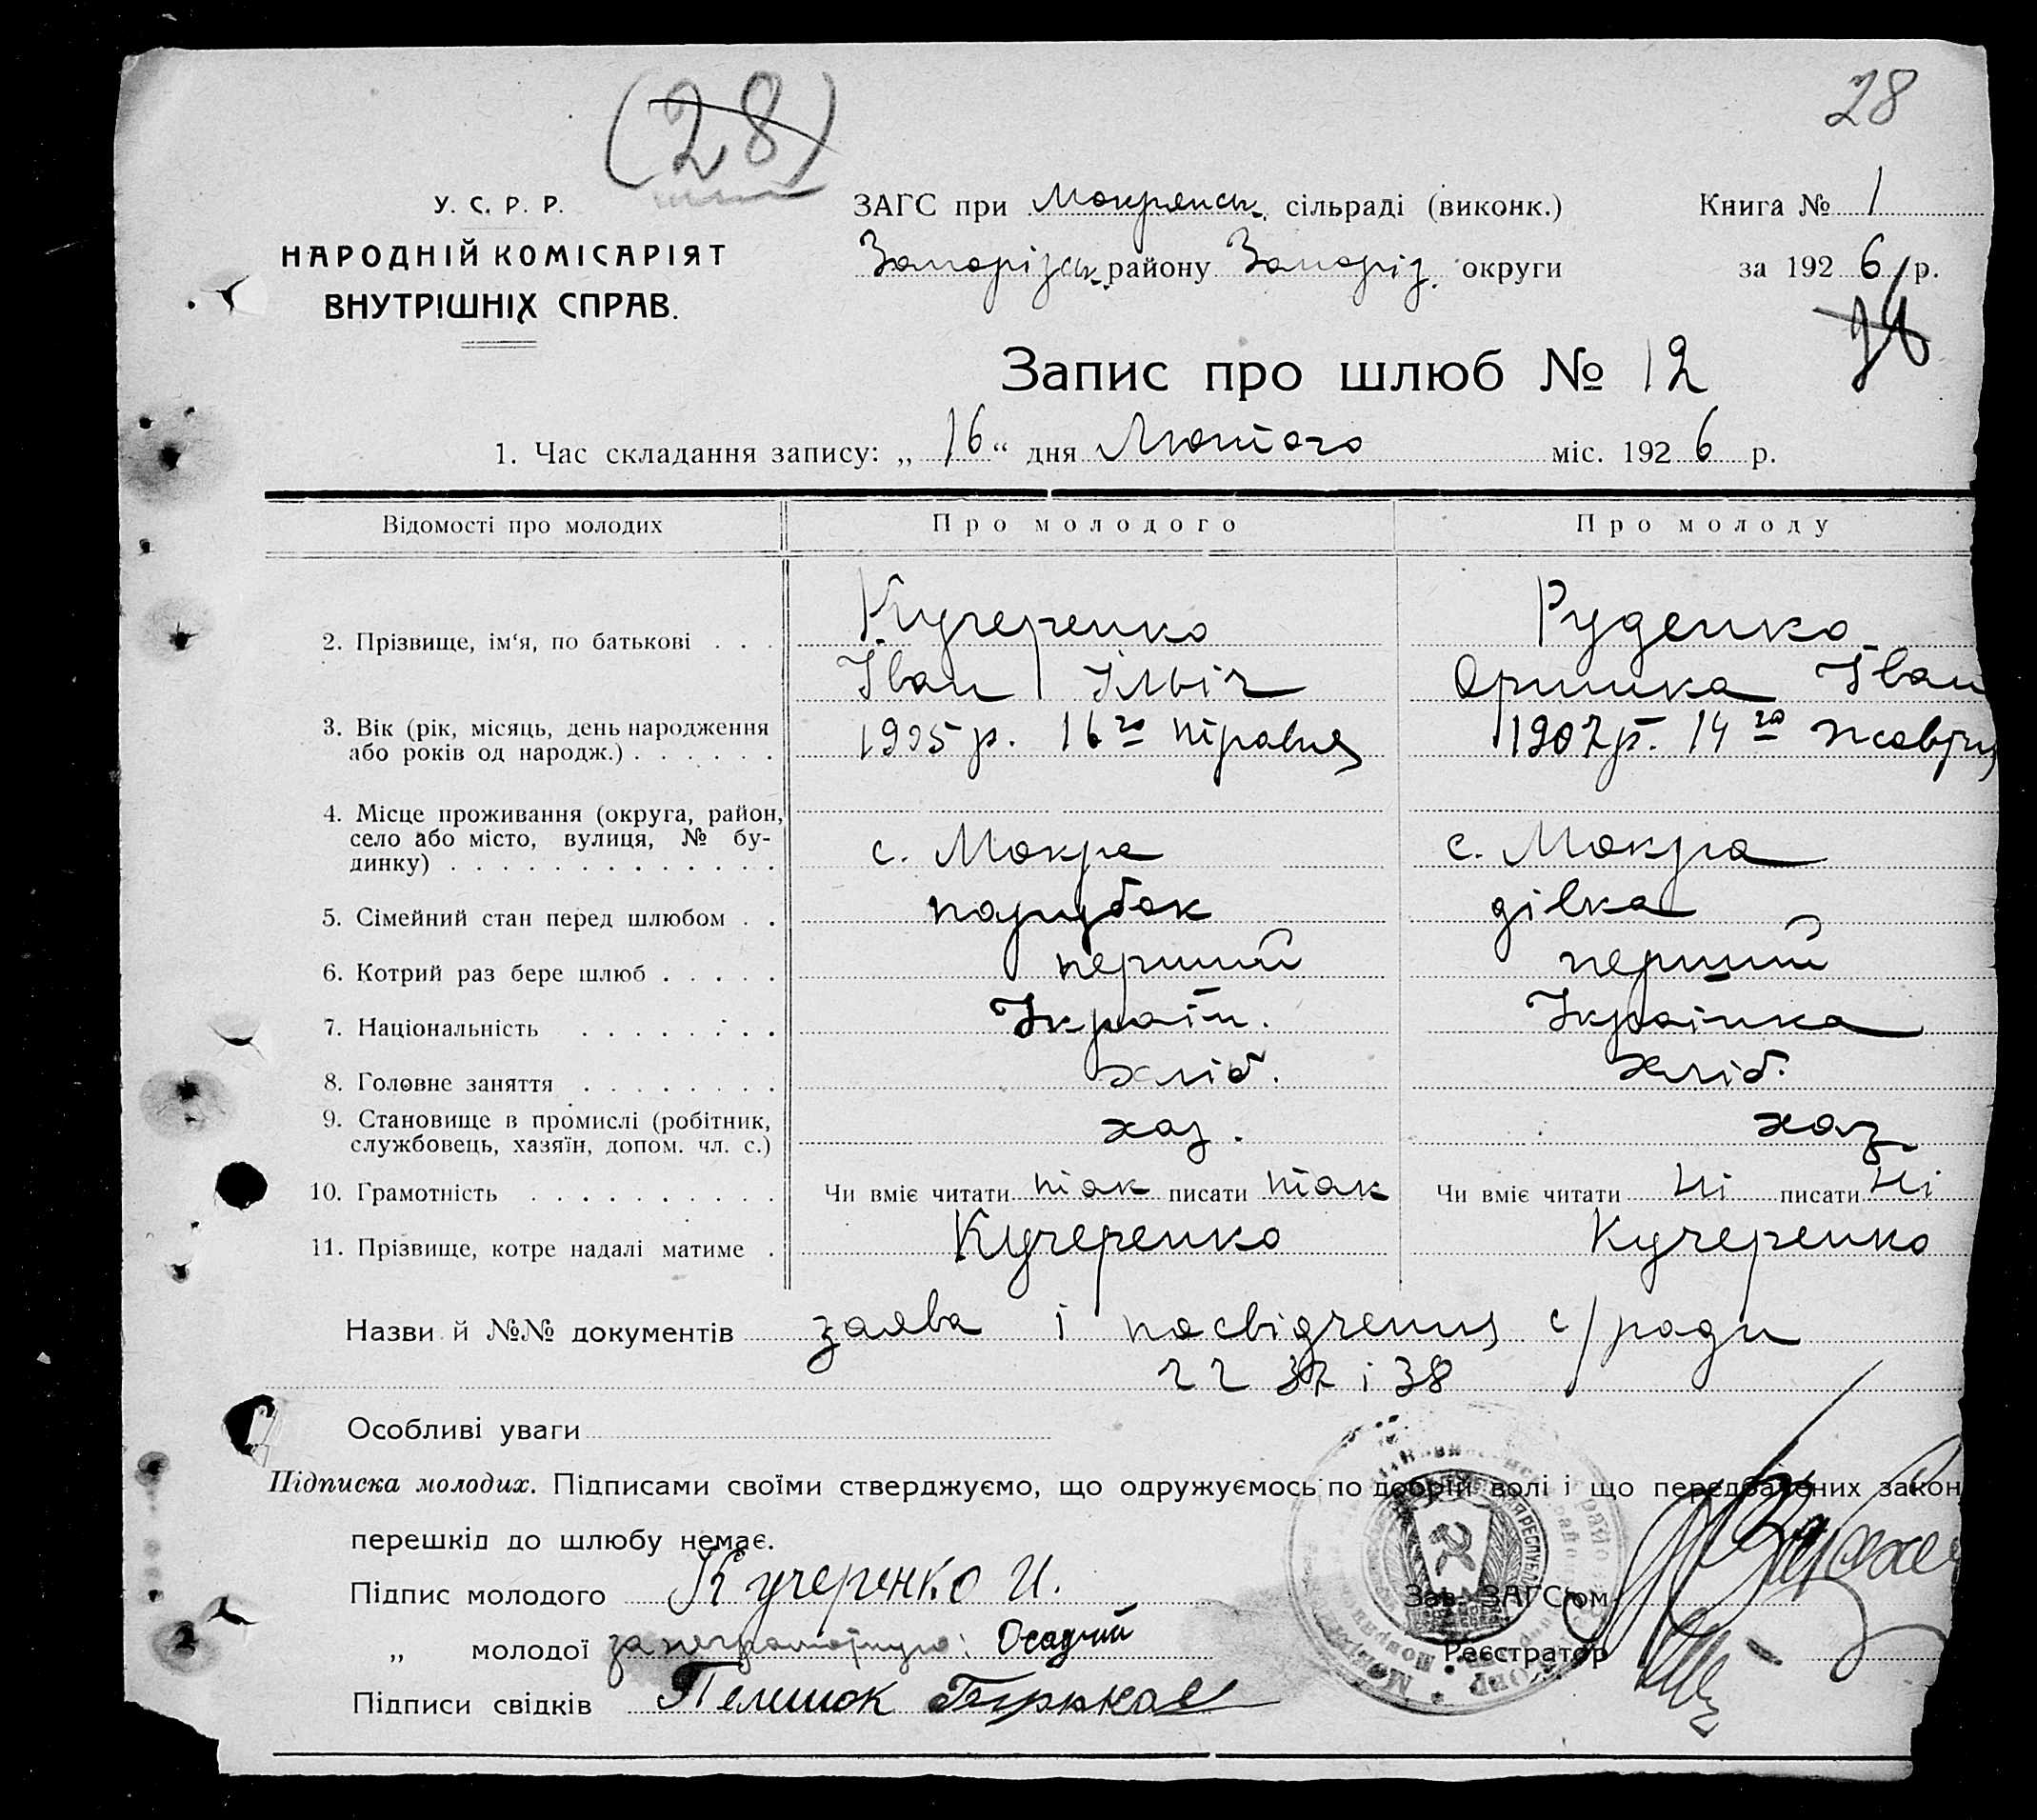 (28)
28
У. С. Р. Р.
НАРОДНІЙ КОМІСАРІЯТ
ВНУТРІШНІХ СПРАВ.
ЗАГС при Мокрянськ. сільраді (виконк.)
Запорізьк. району Запоріз. округи
Книга № 1
за 192 6 р.
28
Запис про шлюб № 12
1. Час складання запису: „ 16 “ дня Лютого міс. 192 6 р.
Відомості про молодих Про молодого Про молоду
2. Прізвище, ім‘я, по батькові . . . Кучеренко Руденко
Іван Ільіч Оришка Іван
3. Вік (рік, місяць, день народження
або років од народж.) . . . . . . 1905 р. 16го травня 1907 р. 14го жовтня
4. Місце проживання (округа, район,
село або місто, вулиця, № бу-
динку) . . . . . . . . . . . . . с. Мокра с. Мокра
5. Сімейний стан перед шлюбом . . парубак дівка
6. Котрий раз бере шлюб . . . . . перший перший
7. Національність . . . . . . . . Україн. Українка
8. Головне заняття . . . . . . . . хліб. хліб.
9. Становище в промислі (робітник,
службовець, хазяїн, допом. чл. с.) хаз. хаз
10. Грамотність . . . . . . . . . . Чи вміє читати так писати так Чи вміє читати Ні писати Ні
11. Прізвище, котре надалі матиме . Кучеренко Кучеренко
Назви й №№ документів заява і посвідчення с/ради
37 і 38
Особливі уваги
Підписка молодих. Підписами своїми стверджуємо, що одружуємось по добрій волі і що передбачених закон
перешкід до шлюбу немає.
Підпис молодого Кучеренко И.
Зав. ЗАГС'ом
„ молодої за неграмотную: Осадчий
Реєстратор
Підписи свідків